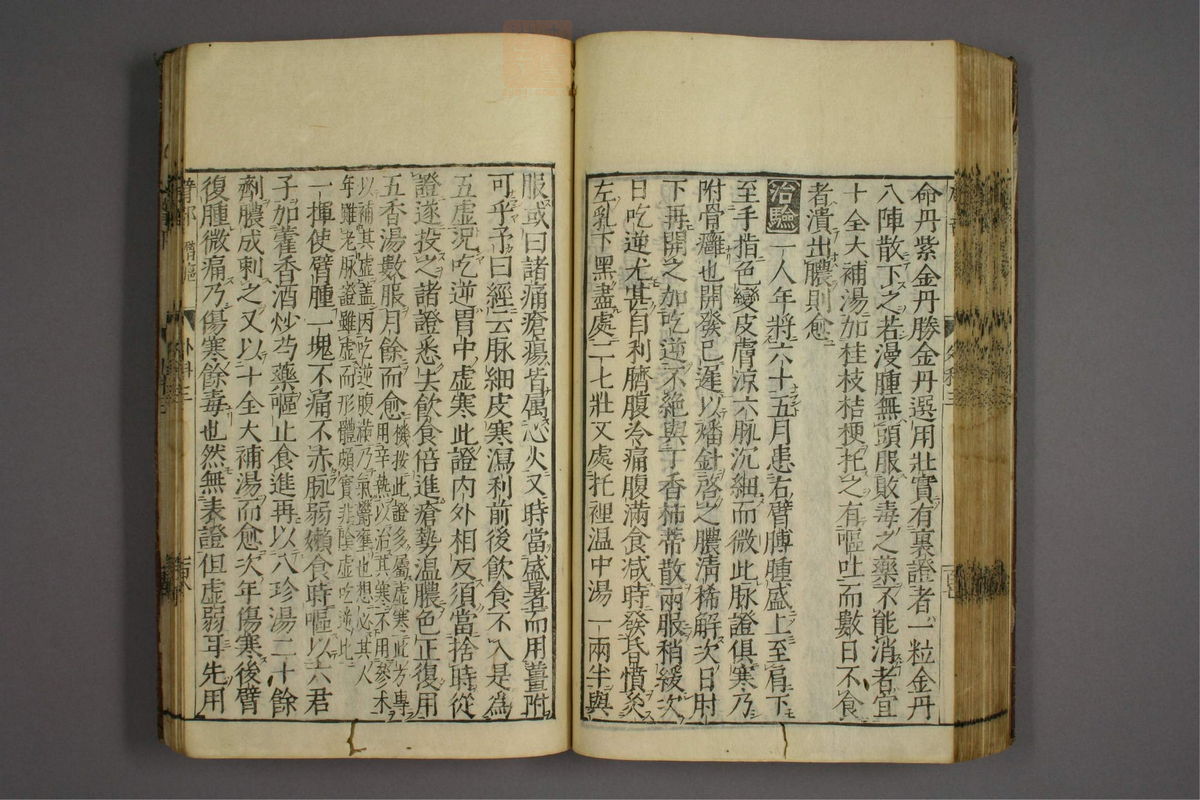 命丹紫金丹勝金丹選用壯實有裏證者一粒金丹
入陣散下之若漫腫無頭服敗毒之藥不能消者宜
十全大補湯加桂枝桔梗托之有嘔吐而數日不食
者潰出膿則愈
治驗 一人年將六十五月患右臂膊腫盛上至肩下
至手指色變皮膚涼六脉沉細而微此脉證俱寒乃
附骨癰也開發已遲以燔針啓之膿清稀解次日肘
下再開之加吃逆不絶與丁香柿蒂散兩服稍緩次
日吃逆尤甚自利臍腹冷痛腹滿食减時發昏憒灸
左乳下黑盡處二七壯又處托裡温中湯一兩半與
服或曰諸痛瘡瘍皆属心火又時當盛暑而用薑附
可乎予曰經云脉細皮寒瀉利前後飲食不入是為
五虚况吃逆胃中虚寒此證内外相反須當捨時從
證遂投之諸證悉去飲食倍進瘡勢温膿色正復用
五香湯數服月餘而愈 機按此證多屬虚寒此方專
用辛𤍠以治其寒不用參术
以補其虚盖因吃逆腹滿乃氣欝壅也想必其人
年雖老脉證雖虚而形體頗實非陰虚吃逆比
一揮使臂腫一塊不痛不赤脉弱嬾食時嘔以六君
子加藿香酒炒芍藥嘔止食進再以八珍湯二十餘
劑膿成刺之又以十全大補湯而愈次年傷寒後臂
復腫微痛乃傷寒餘毒也然無表證但虚弱耳先用
臂部